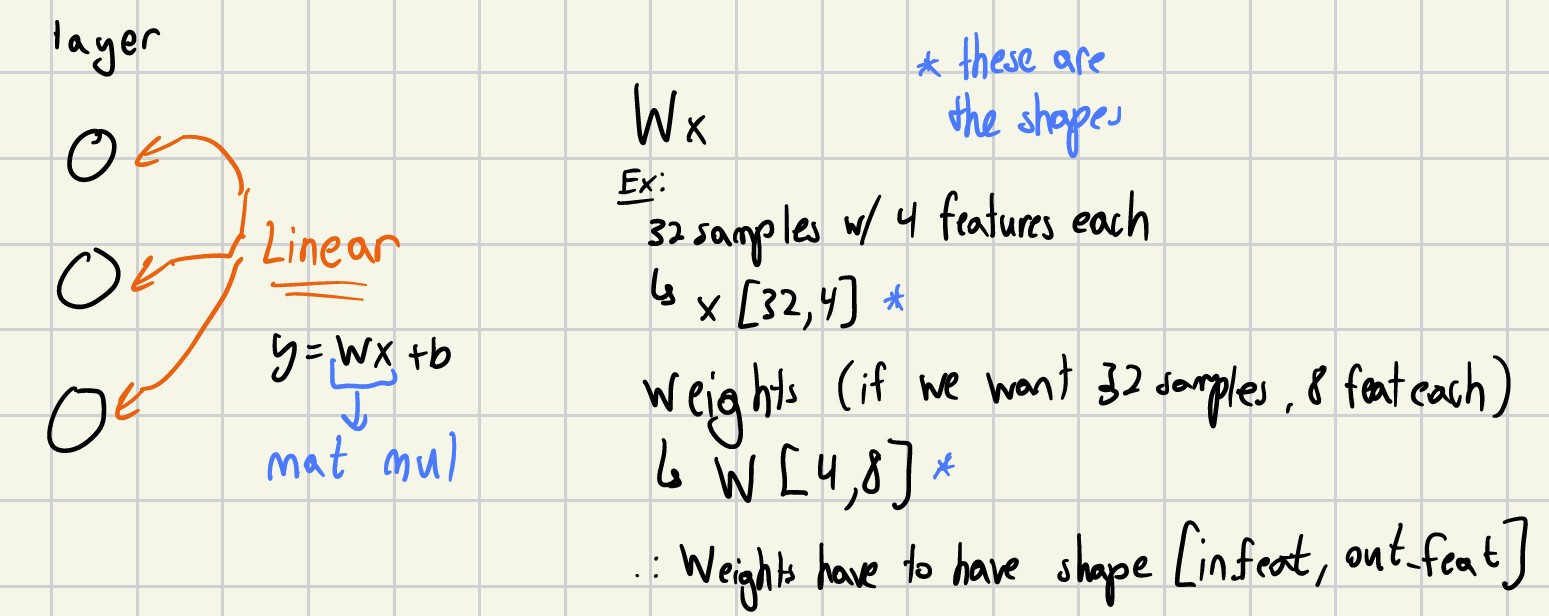 layer
Linear
y = Wx + b
mat mul
* these are
the shapes
Wx
Ex:
32 samples w/ 4 features each
↳ x [32,4] *
Weights (if we want 32 samples, 8 feat each)
↳ W [4,8] *
∴ Weights have to have shape [in_feat, out_feat]